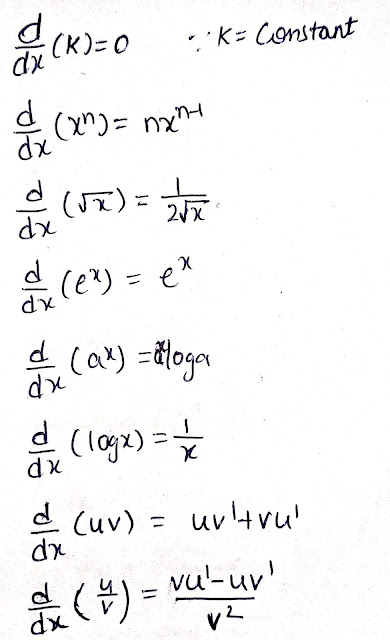 d/dx (K) = 0 ∵ K = Constant
d/dx (xⁿ) = nxⁿ⁻¹
d/dx (√x) = 1/2√x
d/dx (eˣ) = eˣ
d/dx (aˣ) = aˣloga
d/dx (logx) = 1/x
d/dx (uv) = uv' + vu'
d/dx (u/v) = vu' - uv' / v²